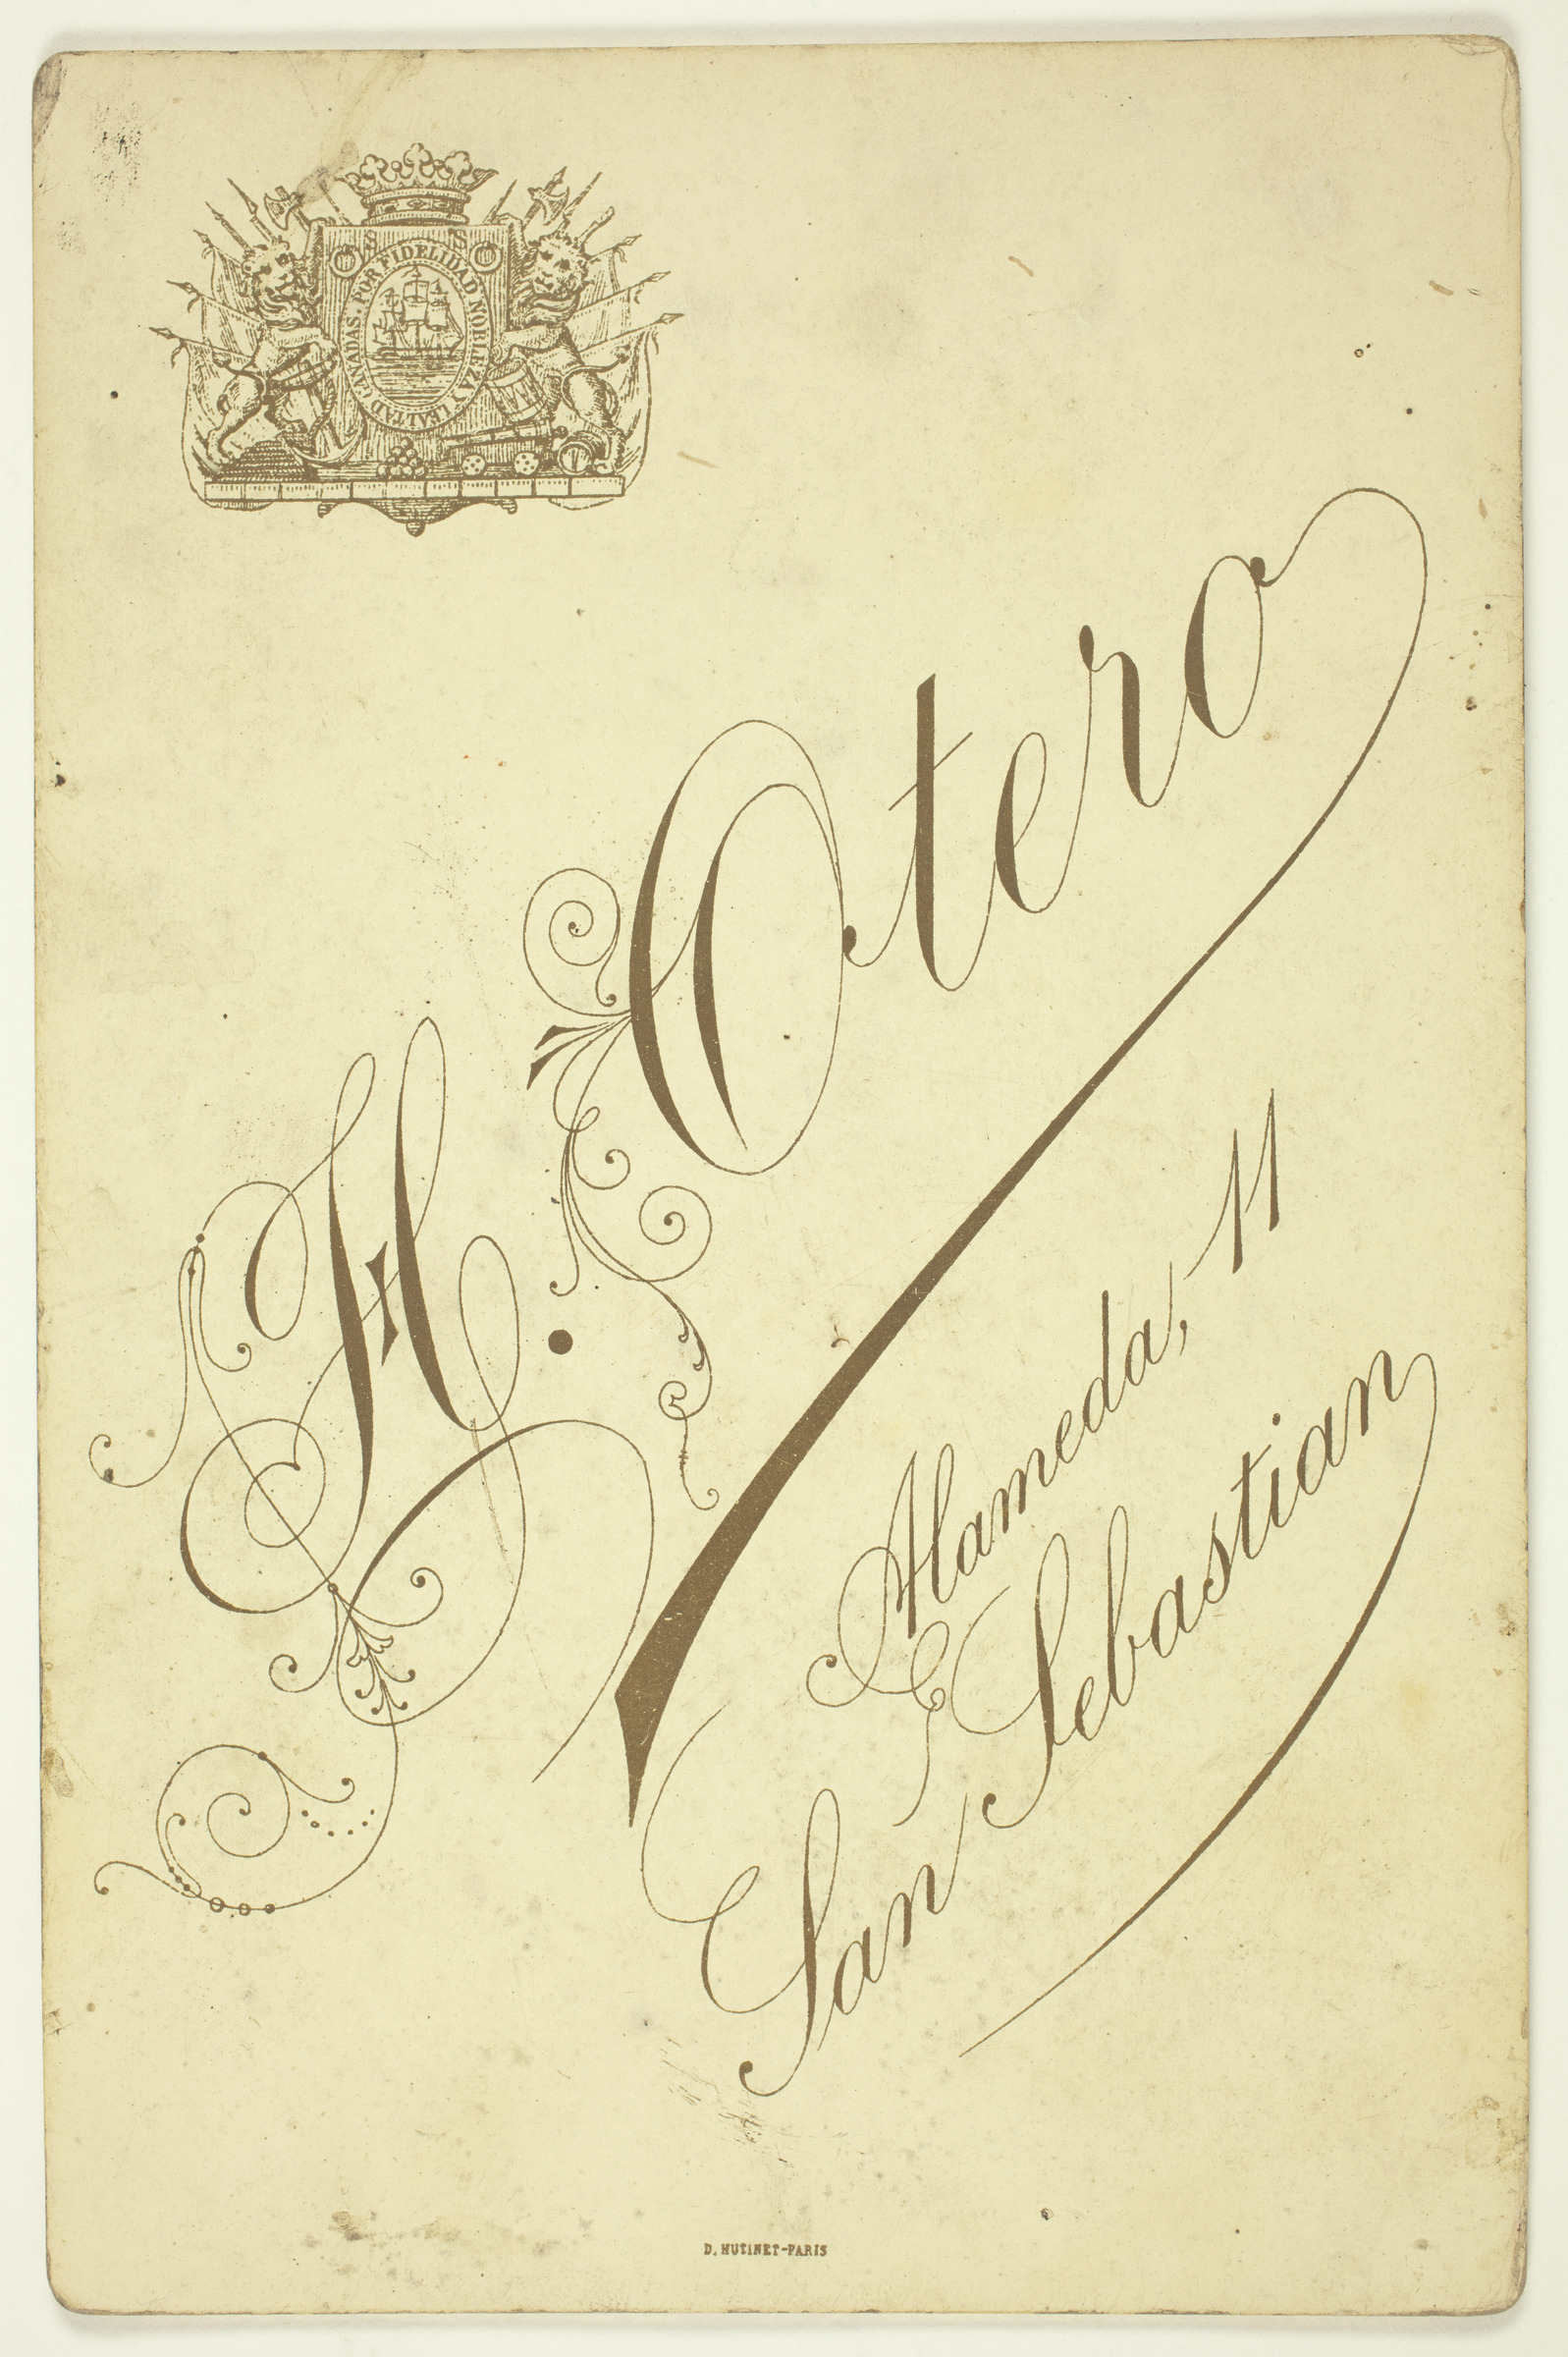 S S
POR FIDELIDAD NOBLEZA Y LEALTAD GANADAS.
H. Otero
Alameda, 11
San Sebastian
D. HUTINET-PARIS